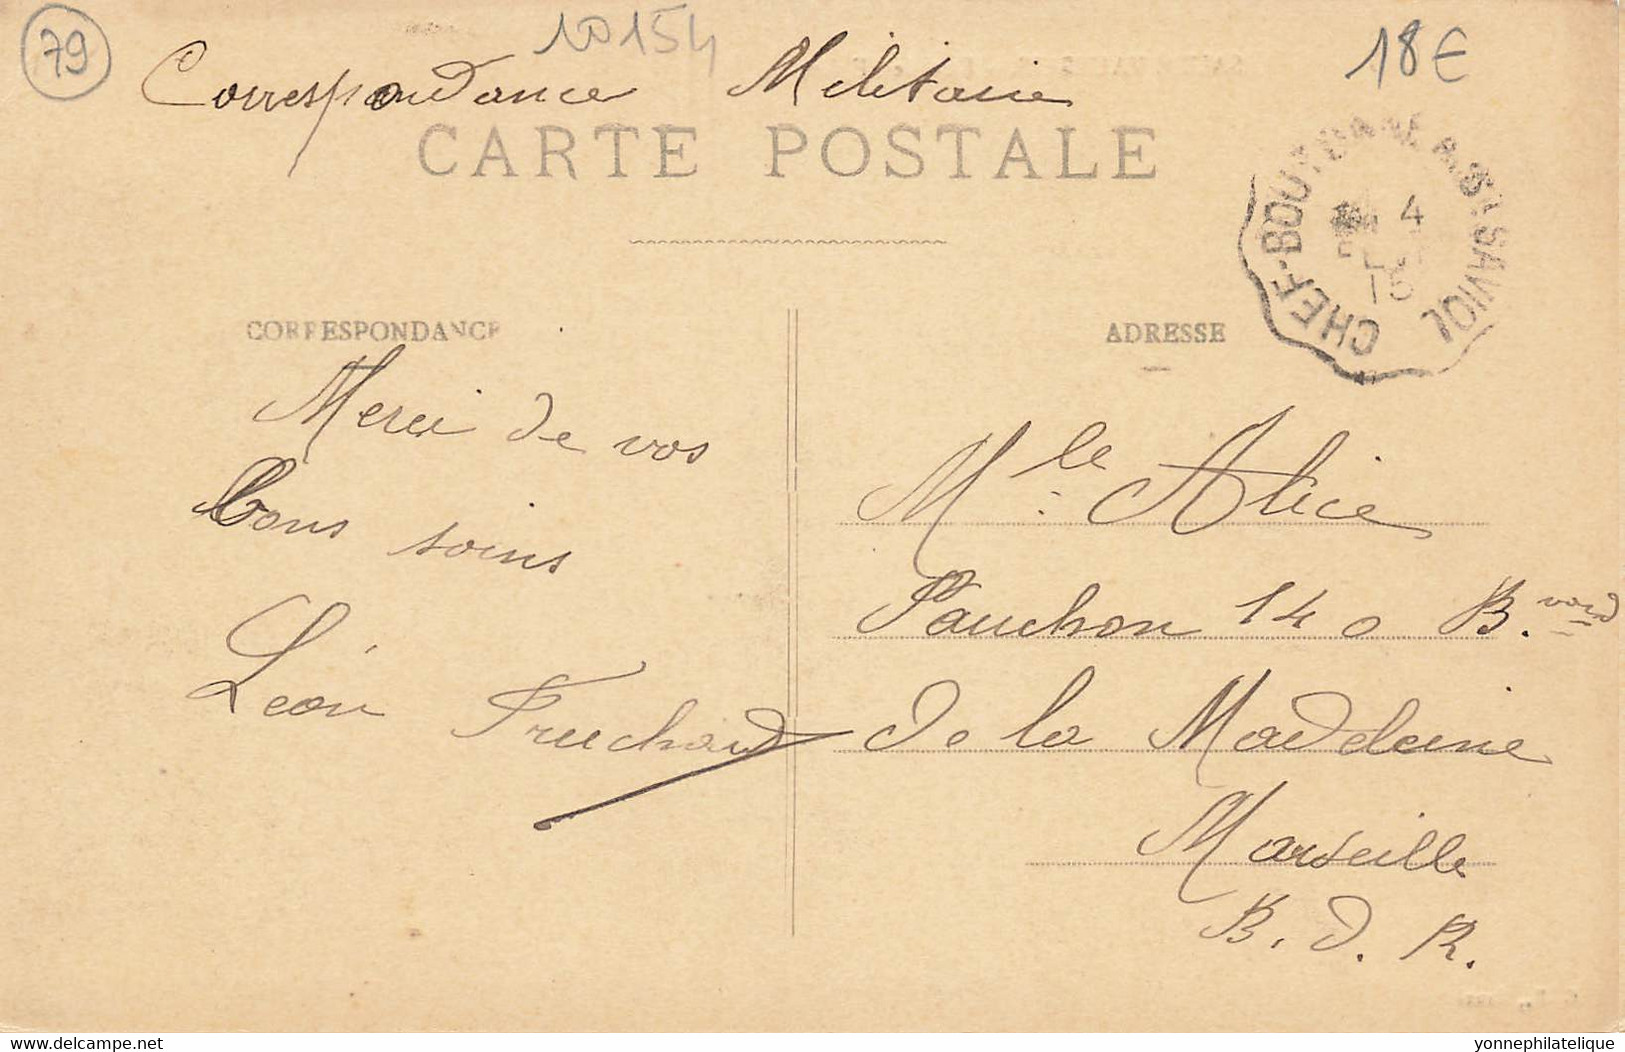 79
10154
18€
Correspondance Militaire
CARTE POSTALE
CHEF-BOUTONNE A ST SAVIOL
4
15
CORRESPONDANCE
ADRESSE
Merci de vos
bons soins
Léon Fruchard
Mle Alice
Pauchon 140 B.vard
de la Madeleine
Marseille
B. d. R.
delcampe.net
yonnephilatelique